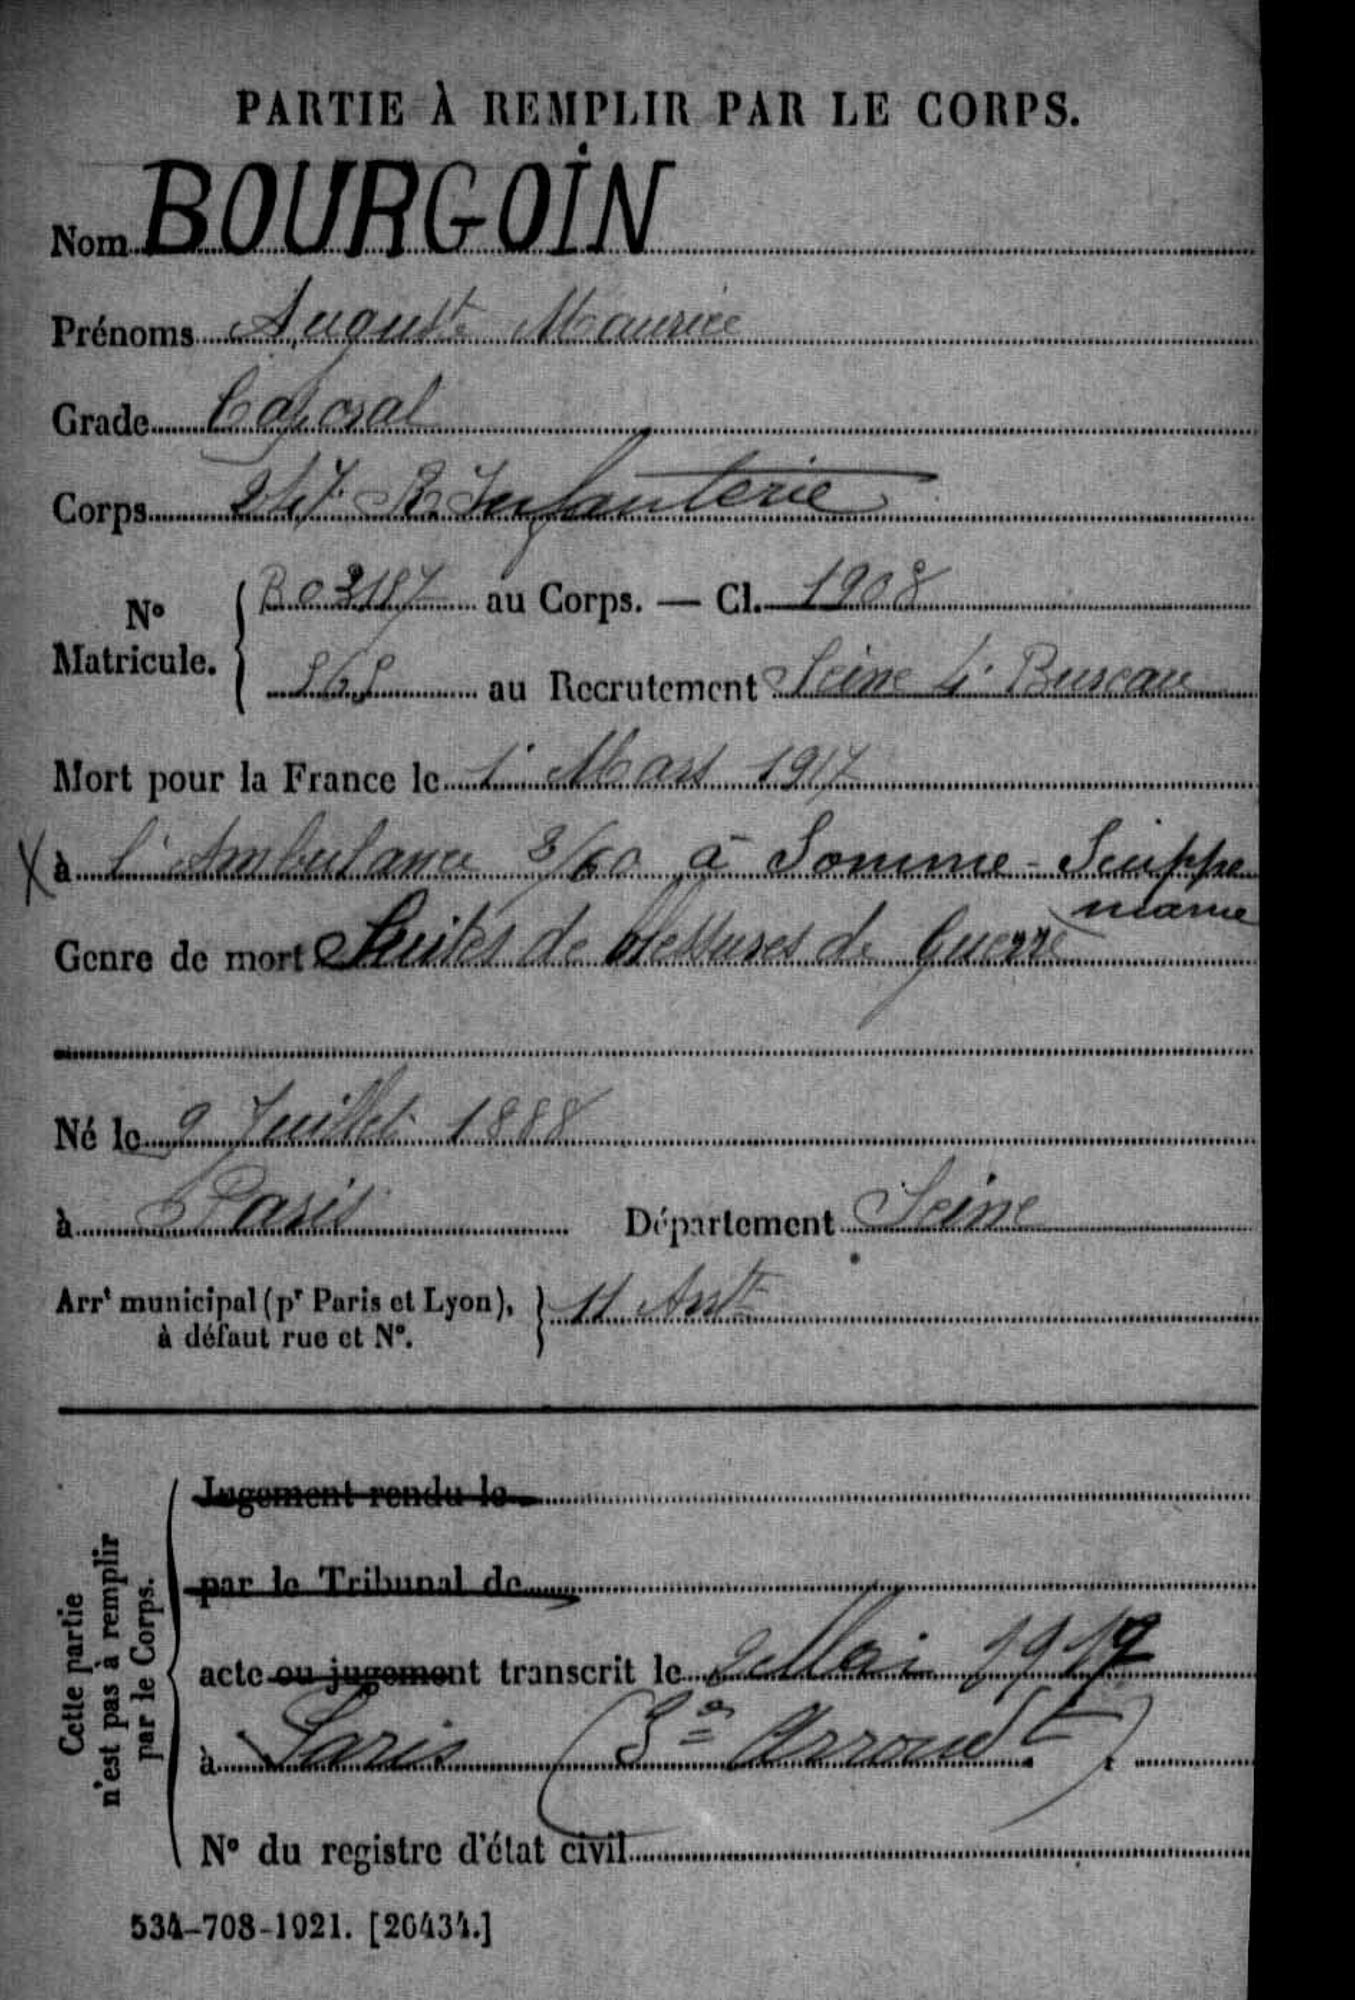 PARTIE À REMPLIR PAR LE CORPS.
Nom BOURGOIN
Prénoms Auguste Maurice
Grade Caporal
Corps 247. R. Infanterie
N° Matricule. 03187 au Corps. — Cl. 1908
au Recrutement Seine 4e Bureau
Mort pour la France le 1er Mars 1917
X à l'Ambulance 3/60 à Somme-Suippe
marne
Genre de mort Suites de blessures de Guerre
Né le 9 Juillet 1888
à Paris Département Seine
Arrt municipal (pr Paris et Lyon), à défaut rue et N°. 11 Arrt
Cette partie n'est pas à remplir par le Corps.
Jugement rendu le
par le Tribunal de
acte ou jugement transcrit le 2 Mai 1917
à Paris (3e Arrondt).
N° du registre d'état civil
534-708-1921. [26434.]